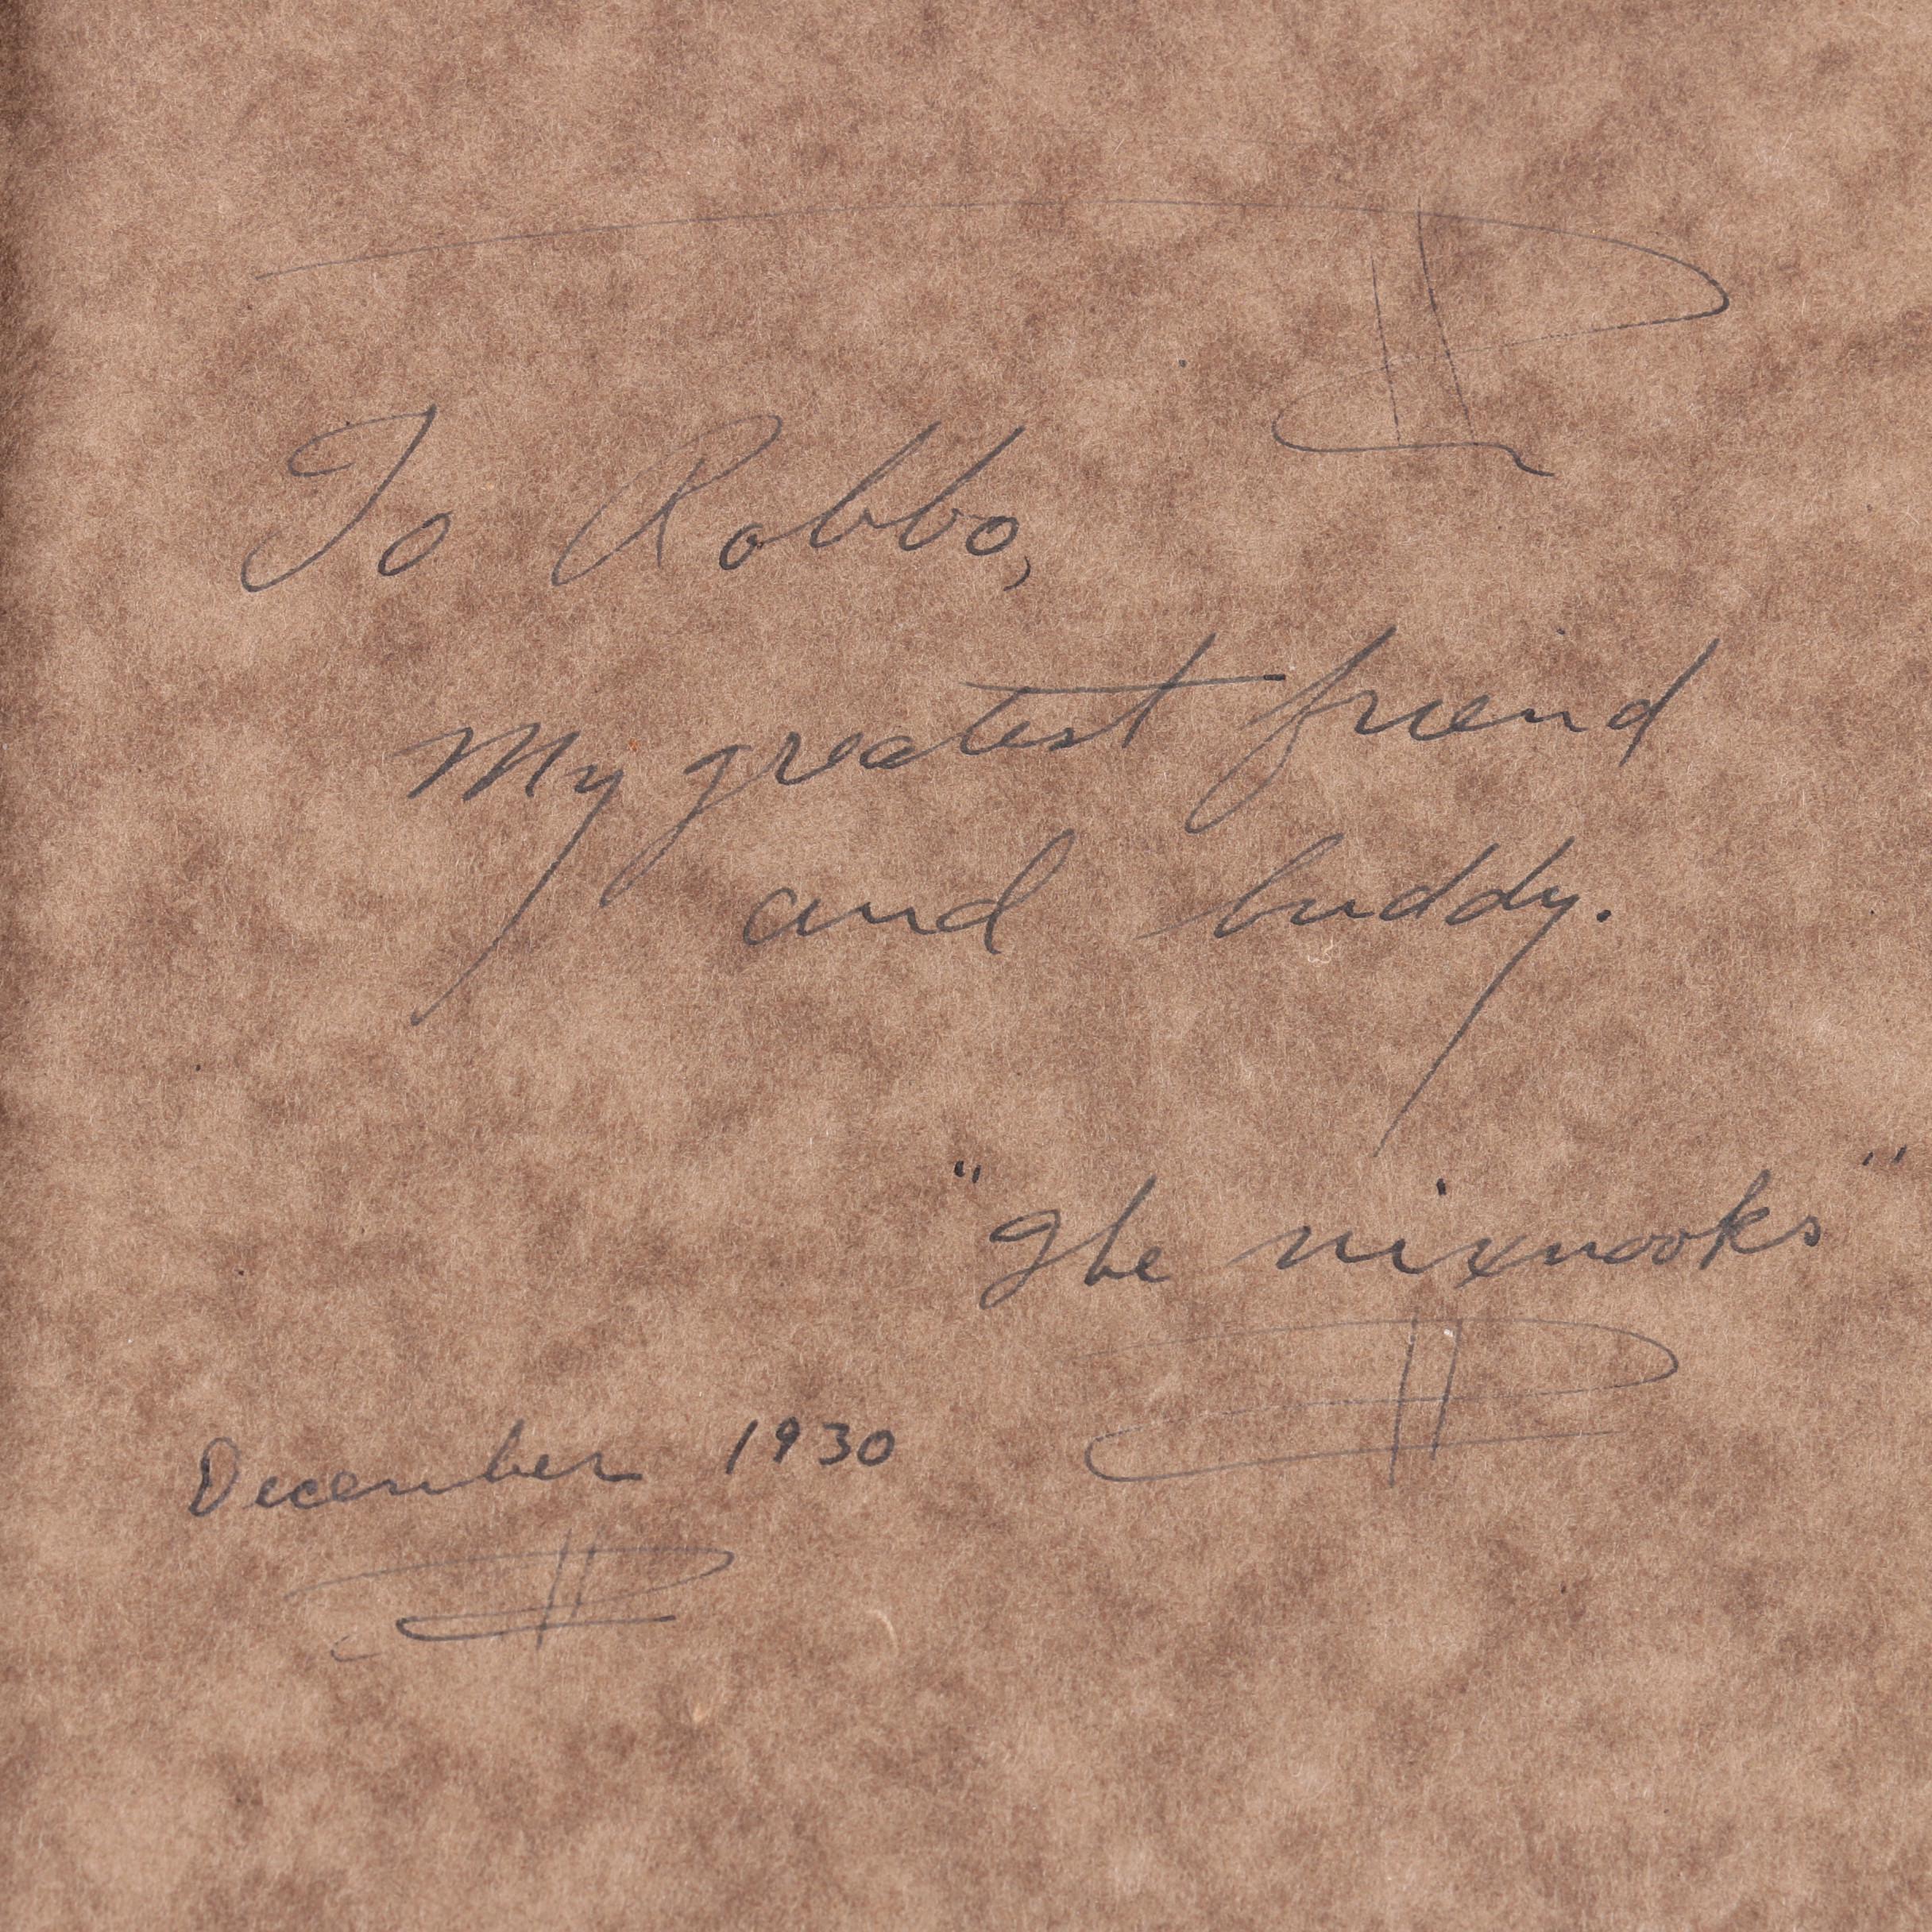 To Robbo,
My greatest friend
and buddy.
"The nixnooks"
December 1930